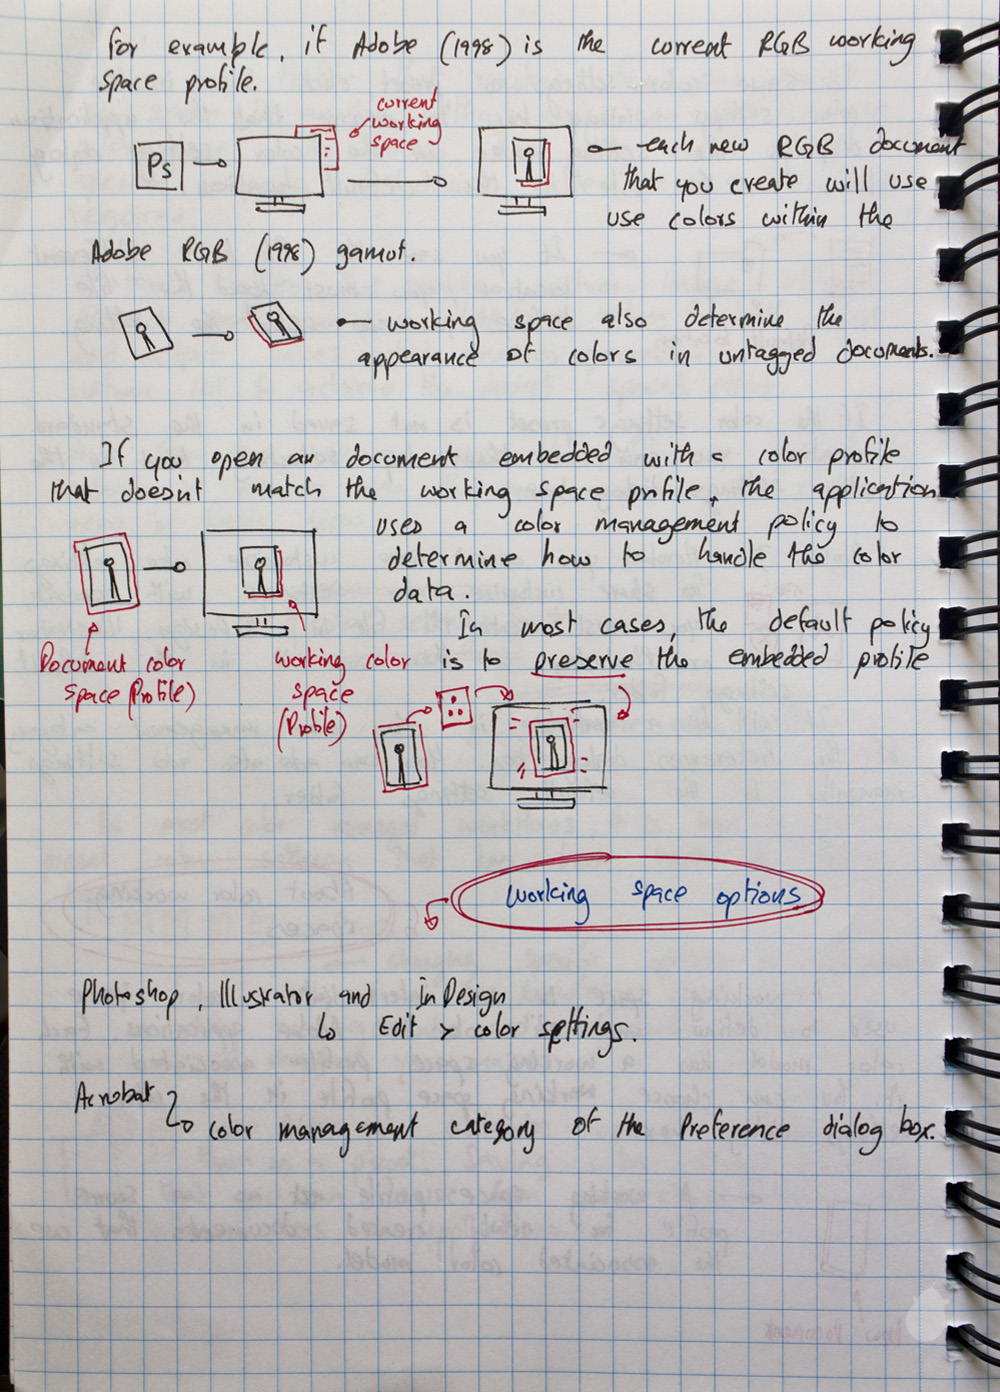 For example, if Adobe (1998) is the current RGB working
space profile.
current
working
space
Ps
each new RGB document
that you create will use
use colors within the
Adobe RGB (1998) gamut.
working space also determine the
appearance of colors in untagged documents.
If you open an document embedded with a color profile
that doesn't match the working space profile, the application
uses a color management policy to
determine how to handle the color
data.
In most cases, the default policy
is to preserve the embedded profile
Document color
space (Profile)
working color
space
(Profile)
working space options
Photoshop, Illustrator and InDesign
Edit > color settings.
Acrobat
color management category of the Preference dialog box.